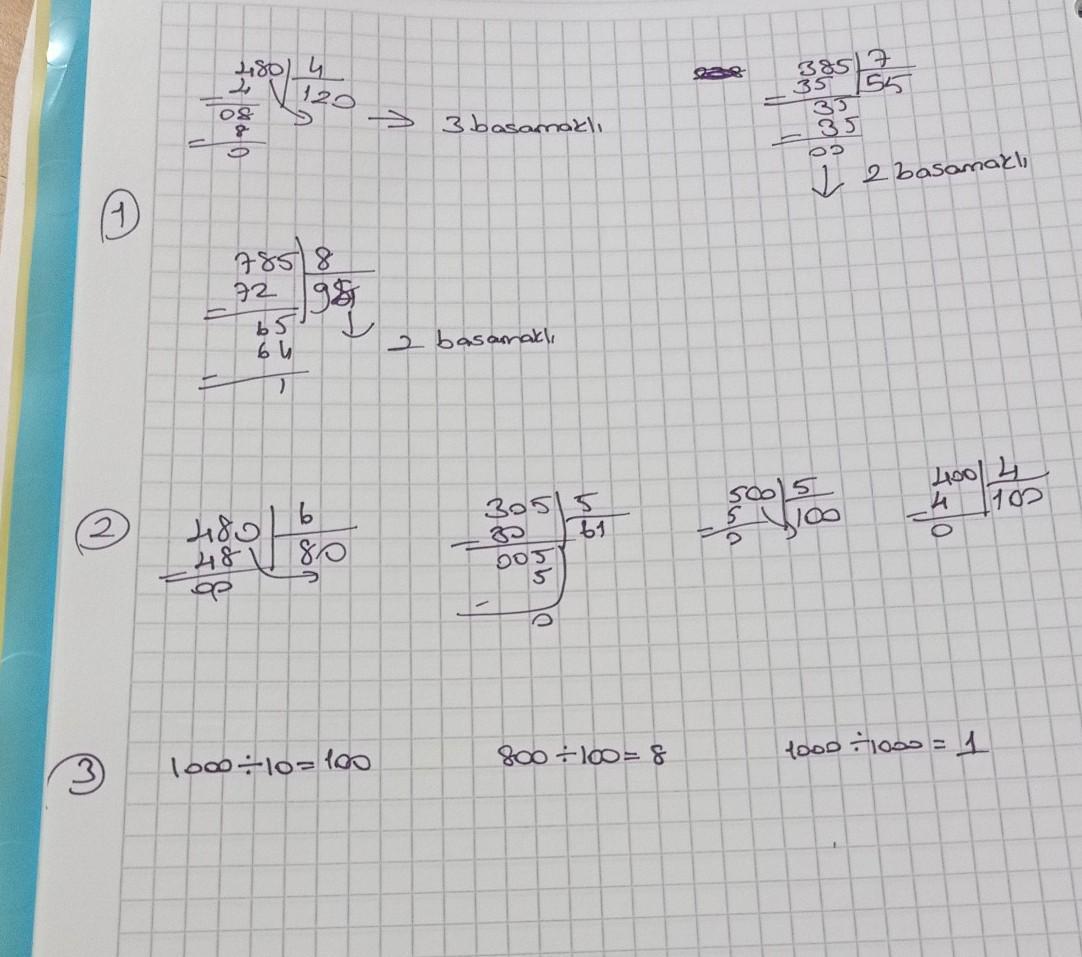 480 4
4 120
08
8
0
→ 3 basamaklı
385 7
35 55
35
35
00
↓ 2 basamaklı
1
785 8
72 98
65
64
1
↓ 2 basamaklı
2
480 6
48 80
00
305 5
30 61
005
5
0
500 5
5 100
0
400 4
4 100
0
3
1000÷10=100
800÷100=8
1000÷1000=1